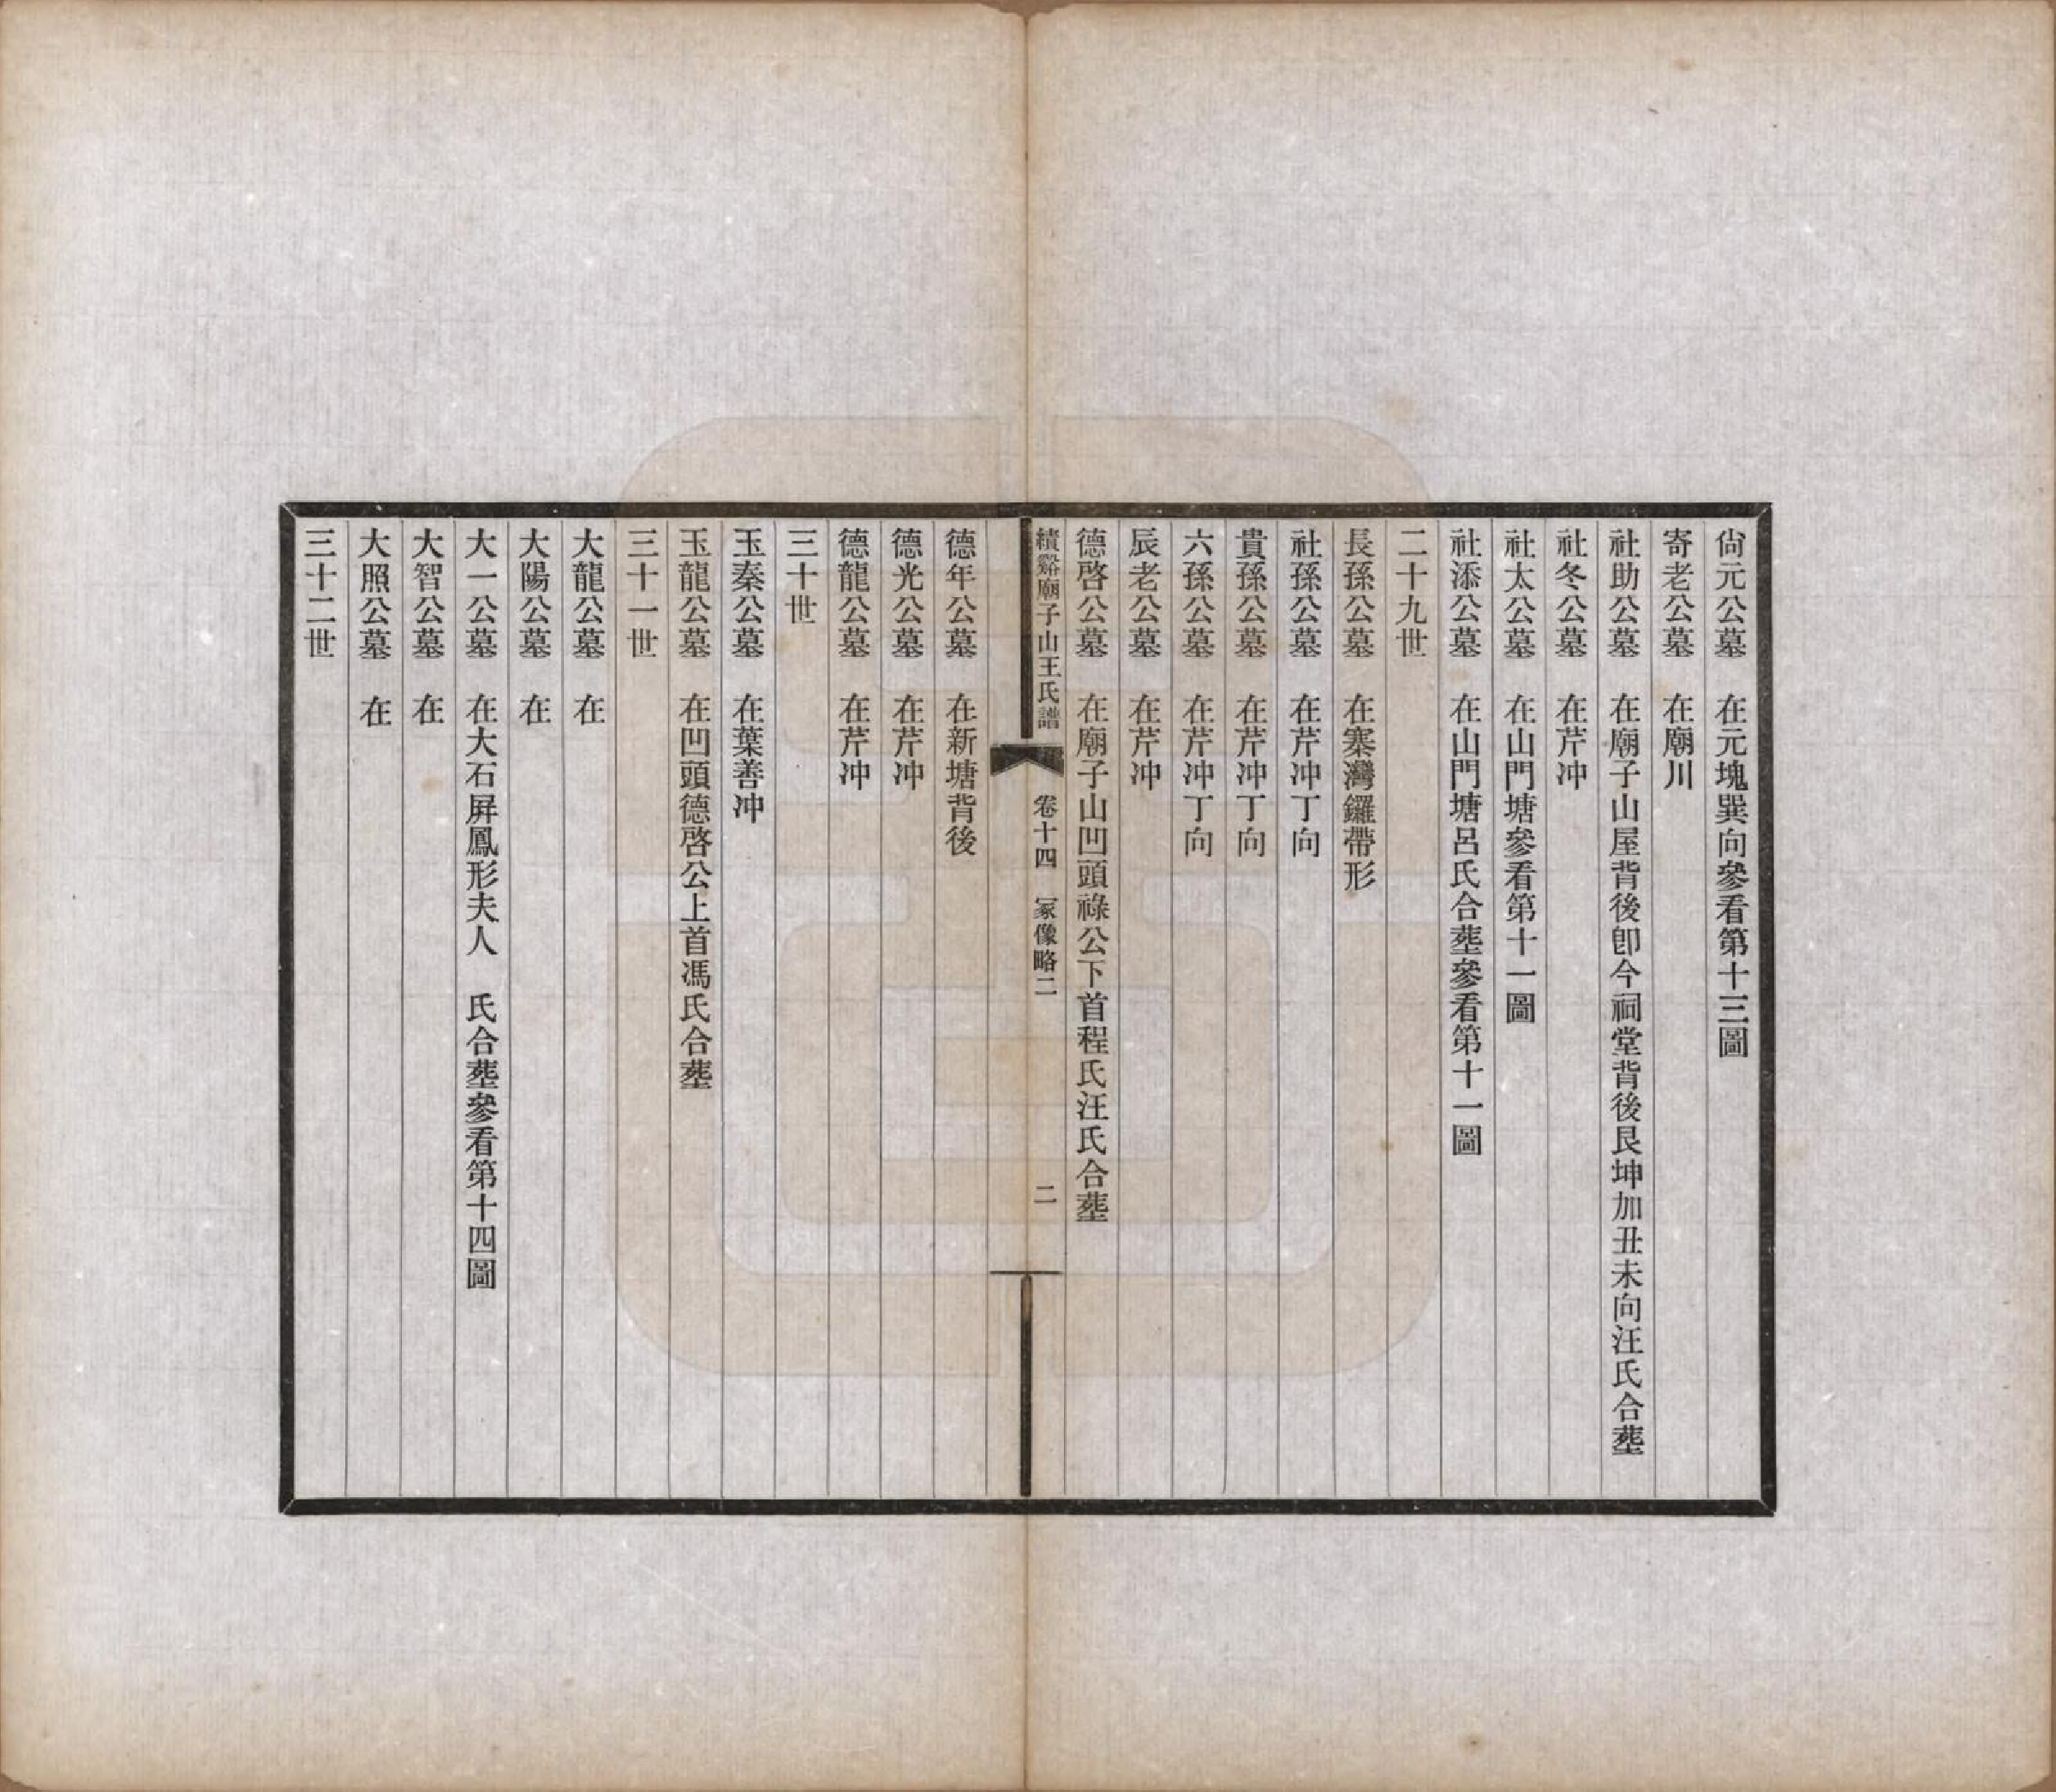 尙元公墓　在元塊巽向參看第十三圖
寄老公墓　在廟川
社助公墓　在廟子山屋背後卽今祠堂背後艮坤加丑未向汪氏合塟
社冬公墓　在芹冲
社太公墓　在山門塘參看第十一圖
社添公墓　在山門塘呂氏合塟參看第十一圖
二十九世
長孫公墓　在寨灣鑼帶形
社孫公墓　在芹冲丁向
貴孫公墓　在芹冲丁向
六孫公墓　在芹冲丁向
辰老公墓　在芹冲
德啓公墓　在廟子山凹頭祿公下首程氏汪氏合塟
績谿廟子山王氏譜　卷十四　冢像略二　二
德年公墓　在新塘背後
德光公墓　在芹冲
德龍公墓　在芹冲
三十世
玉秦公墓　在葉善冲
玉龍公墓　在凹頭德啓公上首馮氏合塟
三十一世
大龍公墓　在
大陽公墓　在
大一公墓　在大石屛鳳形夫人　氏合塟參看第十四圖
大智公墓　在
大照公墓　在
三十二世